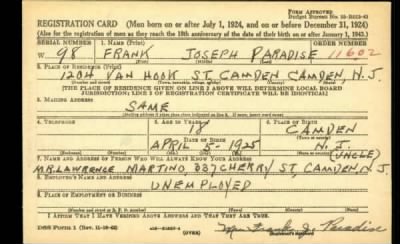 FORM APPROVED
REGISTRATION CARD (Men born on or after July 1, 1924, and on or before December 31, 1924)
(Also for the registration of men as they reach the 18th anniversary of the date of their birth on or after January 1, 1943.)
SERIAL NUMBER 1. NAME (Print) ORDER NUMBER
W 98 FRANK JOSEPH PARADISE 11602
2. PLACE OF RESIDENCE (Print)
1204 VAN HOOK ST. CAMDEN CAMDEN, N.J.
[THE PLACE OF RESIDENCE GIVEN ON LINE 2 ABOVE WILL DETERMINE LOCAL BOARD
JURISDICTION; LINE 2 OF REGISTRATION CERTIFICATE WILL BE IDENTICAL]
3. MAILING ADDRESS
SAME
4. TELEPHONE 5. AGE IN YEARS 6. PLACE OF BIRTH
18 CAMDEN
DATE OF BIRTH
APRIL 5-1925 N.J.
7. NAME AND ADDRESS OF PERSON WHO WILL ALWAYS KNOW YOUR ADDRESS (UNCLE)
MR. LAWRENCE MARTINO, 337 CHERRY ST. CAMDEN, N.J.
8. EMPLOYER'S NAME AND ADDRESS
UNEMPLOYED
9. PLACE OF EMPLOYMENT OR BUSINESS
I AFFIRM THAT I HAVE VERIFIED ABOVE ANSWERS AND THAT THEY ARE TRUE.
DSS Form 1 Frank J. Paradise